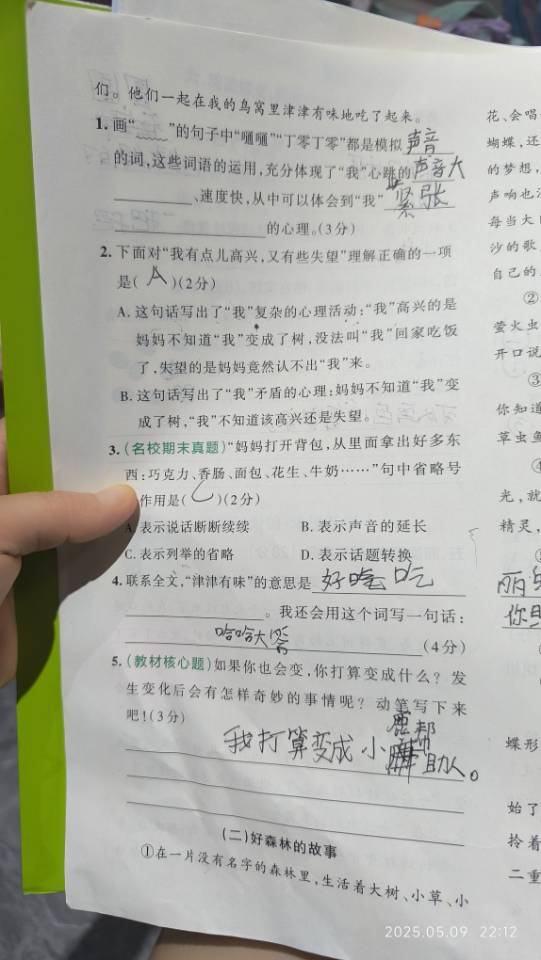 们。他们一起在我的鸟窝里津津有味地吃了起来。
1. 画“﹏﹏”的句子中“嗵嗵”“丁零丁零”都是模拟声音
的词,这些词语的运用,充分体现了“我”心跳的声音大
、速度快,从中可以体会到“我”紧张
的心理。(3分)
2. 下面对“我有点儿高兴,又有些失望”理解正确的一项
是( A )(2分)
A. 这句话写出了“我”复杂的心理活动:“我”高兴的是
妈妈不知道“我”变成了树,没法叫“我”回家吃饭
了,失望的是妈妈竟然认不出“我”来。
B. 这句话写出了“我”矛盾的心理:妈妈不知道“我”变
成了树,“我”不知道该高兴还是失望。
3. (名校期末真题)“妈妈打开背包,从里面拿出好多东
西:巧克力、香肠、面包、花生、牛奶……”句中省略号
作用是( C )(2分)
A. 表示说话断断续续 B. 表示声音的延长
C. 表示列举的省略 D. 表示话题转换
4. 联系全文,“津津有味”的意思是好吃
。我还会用这个词写一句话:
哈哈大答(4分)
5. (教材核心题)如果你也会变,你打算变成什么?发
生变化后会有怎样奇妙的事情呢?动笔写下来
吧!(3分)
我打算变成小鹿帮助人。
(二)好森林的故事
①在一片没有名字的森林里,生活着大树、小草、小
花、会唱
蝴蝶,还
的梦想,
声响也
每当大
沙的歌
自己的
②
萤火虫
开口说
③
你知道
草虫鱼
④
光,就
精灵,
丽
你
蝶形
始了
拎着
二重
2025.05.09 22:12